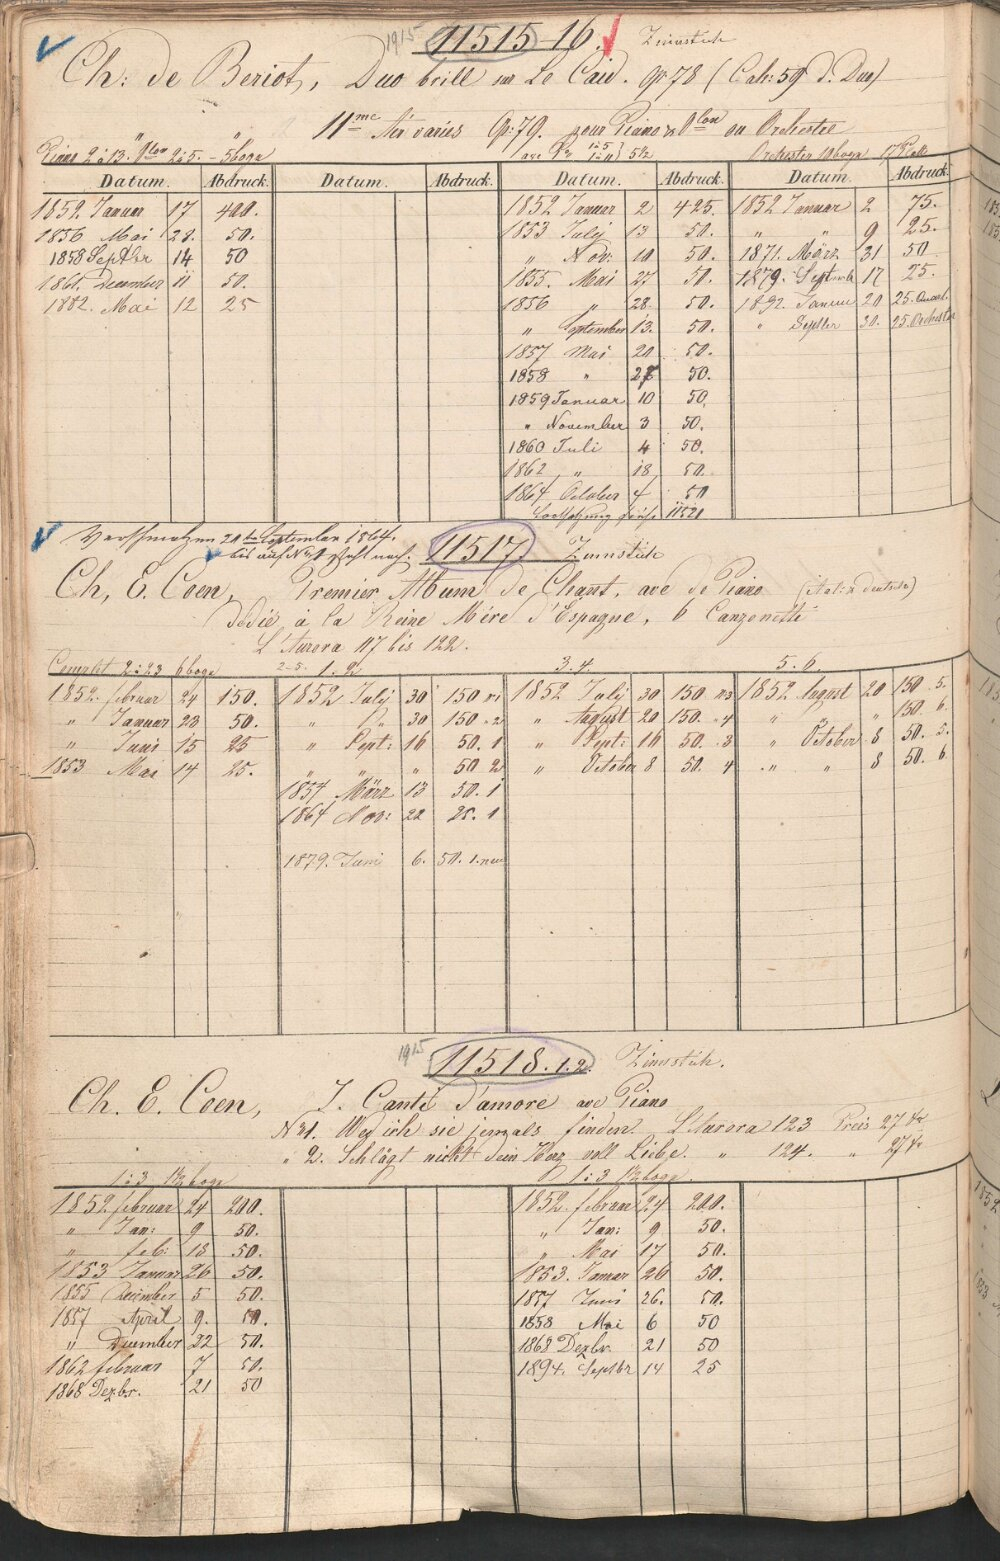 1915 11515-16. Zinnstich
Ch: de Beriot, Duo brill sur Le Caid. Op. 78 (Cah: 59 d. Duo)
11me Air variés Op: 79. pour Piano & Vlon ou Orchestre
Piano 2 à 13. Vlon 2 à 5. - 5 bogn
5½ Orchester 10 bogn
Datum. Abdruck. Datum. Abdruck. Datum. Abdruck. Datum. Abdruck.
1852 Januar 17 400. 1852 Januar 2 425. 1852 Januar 2 75.
1856 Mai 28. 50. 1853 July 13 50. " " 9 25.
1858 Septbr 14 50 " Nov: 10 50. 1871. März 31 50
1861. December 11 50. 1855. Mai 27 50. 1879. Septemb 17 25.
1882. Mai 12 25 1856 " 28. 50. 1892. Januar 20 25. Quart.
" September 13. 50. " Septber 30. 25. Orchester
1857 Mai 20 50.
1858 " 27 50.
1859 Januar 10 50.
" November 3 50.
1860 Juli 4 50.
1862 " 18 50.
1864 October 4 50
Fortsetzung siehe 11521
Verschmolzen 20 September 1864.
bis auf No 1 11517. Zinnstich
Ch. E. Coen, Premier Album de Chant, ave de Piano (ital: & deutsch)
Dedié à la Reine Mère d'Espagne, 6 Canzonetti
L'Aurora 117 bis 122.
Complet 2 à 23 6 bogn 2-5. 1. 2. 3. 4. 5. 6.
1852. februar 24 150. 1852 July 30 150 No 1 1852 July 30 150 No 3 1852 August 20 150. 5.
" Januar 28 50. " " 30 150 " 2 " August 20 150. " 4 " " " 150. 6.
" Juni 15 25 " Sept: 16 50. 1 " Sept: 16 50. " 3 " October 8 50. 5.
1853 Mai 14 25. " " " 50 2 " October 8 50. 4 " " 8 50. 6
1857 März 13 50. 1
1864 Nov: 22 25. 1
1879. Juni 6. 50. 1. neu
1915 11518. 1. 2. Zinnstich.
Ch. E. Coen, I. Canti d'amore ave Piano
No 1. Werd ich sie jemals finden. L'Aurora 123 Preis 27 Xr
" 2. Schlägt nicht dein Herz voll Liebe. " 124. " 27 Xr
1 à 3 1½ bogn 1 à 3 1½ bogn.
1852. februar 24 200. 1852. februar 24 200.
" Jan: 9 50. " Jan: 9 50.
" feb: 18 50. " Mai 17 50.
1853 Januar 26 50. 1853. Januar 26 50.
1855 December 5 50. 1857 Juni 26. 50.
1857 April 9. 50. 1858 Mai 6 50
" December 22 50. 1868 Dezbr. 21 50
1862 februar 7 50. 1894. Septbr 14 25
1868 Dezbr. 21 50